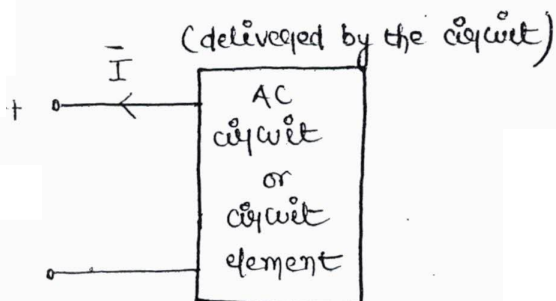 (delivered by the circuit)
Ī
+
AC
circuit
or
circuit
element